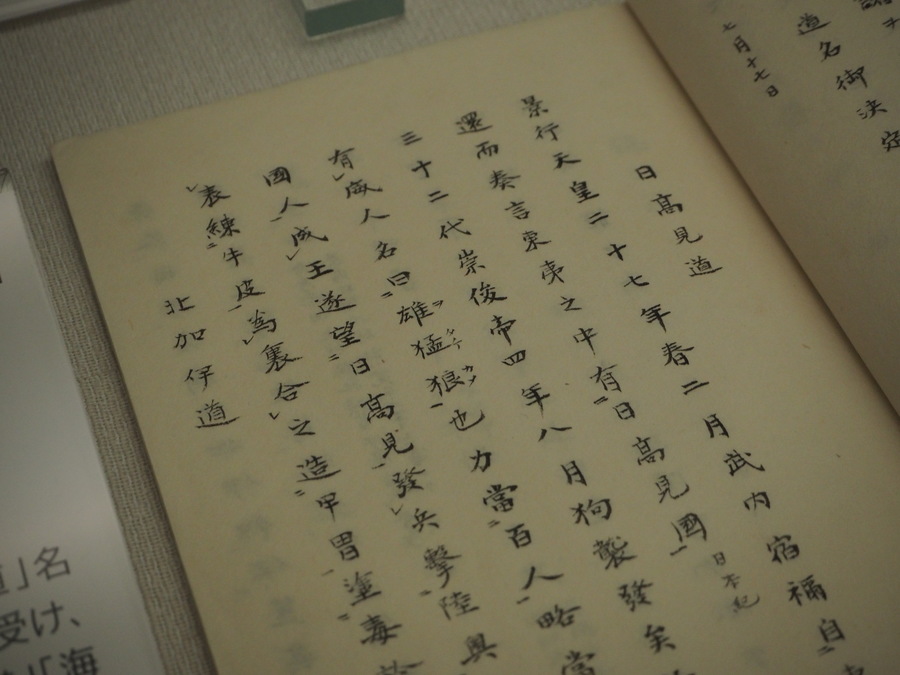 道名御決定
七月十七日
日高見道
景行天皇二十七年春二月武内宿禰自
還而奏言東夷之中有日高見國 日本紀
三十二代崇俊帝四年八月狗襲發矣
有威人名曰雄猛狼也力當百人略當
國人成王遂望日高見發兵擊陸奥
表練牛皮為裏合之造甲冑塗毒
北加伊道
」名
受け、
「海